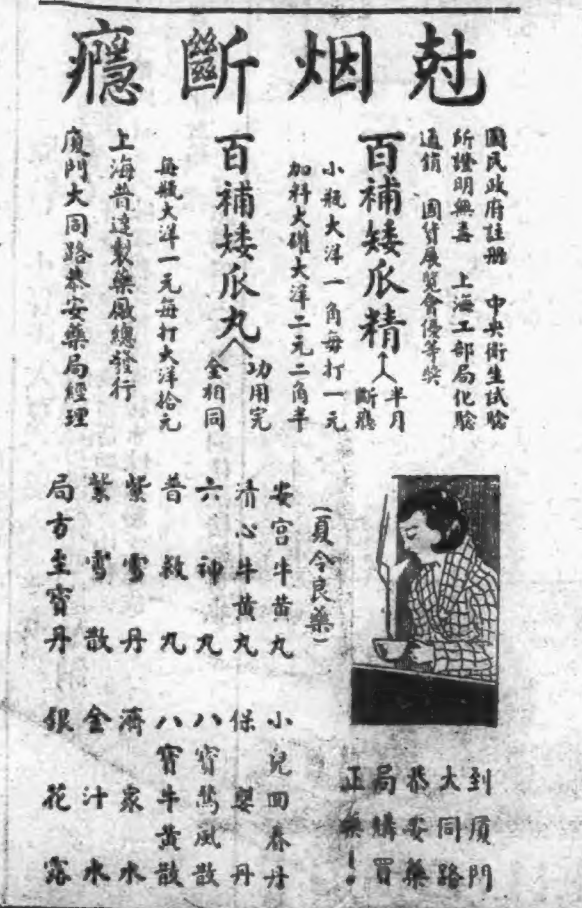 尅烟斷癮
國民政府註册 中央衛生試驗
所證明無毒 上海工部局化驗
通銷 國貨展覽會優等獎
百補矮瓜精
半月
斷癮
小瓶大洋一角每打一元
加料大罐大洋二元二角半
百補矮瓜丸
功用完
全相同
每瓶大洋一元每打大洋拾元
上海普達製藥厰總發行
廈門大同路恭安藥局經理
到廈門
大同路
恭安藥
局購買
正藥！
(夏令良藥)
安宮牛黄丸
清心牛黄丸
六神丸
普救丸
紫雪丹
紫雪散
局方至寶丹
小兒回春丹
保嬰丹
八寶驚風散
八寶牛黄散
濟衆水
金汁水
銀花露